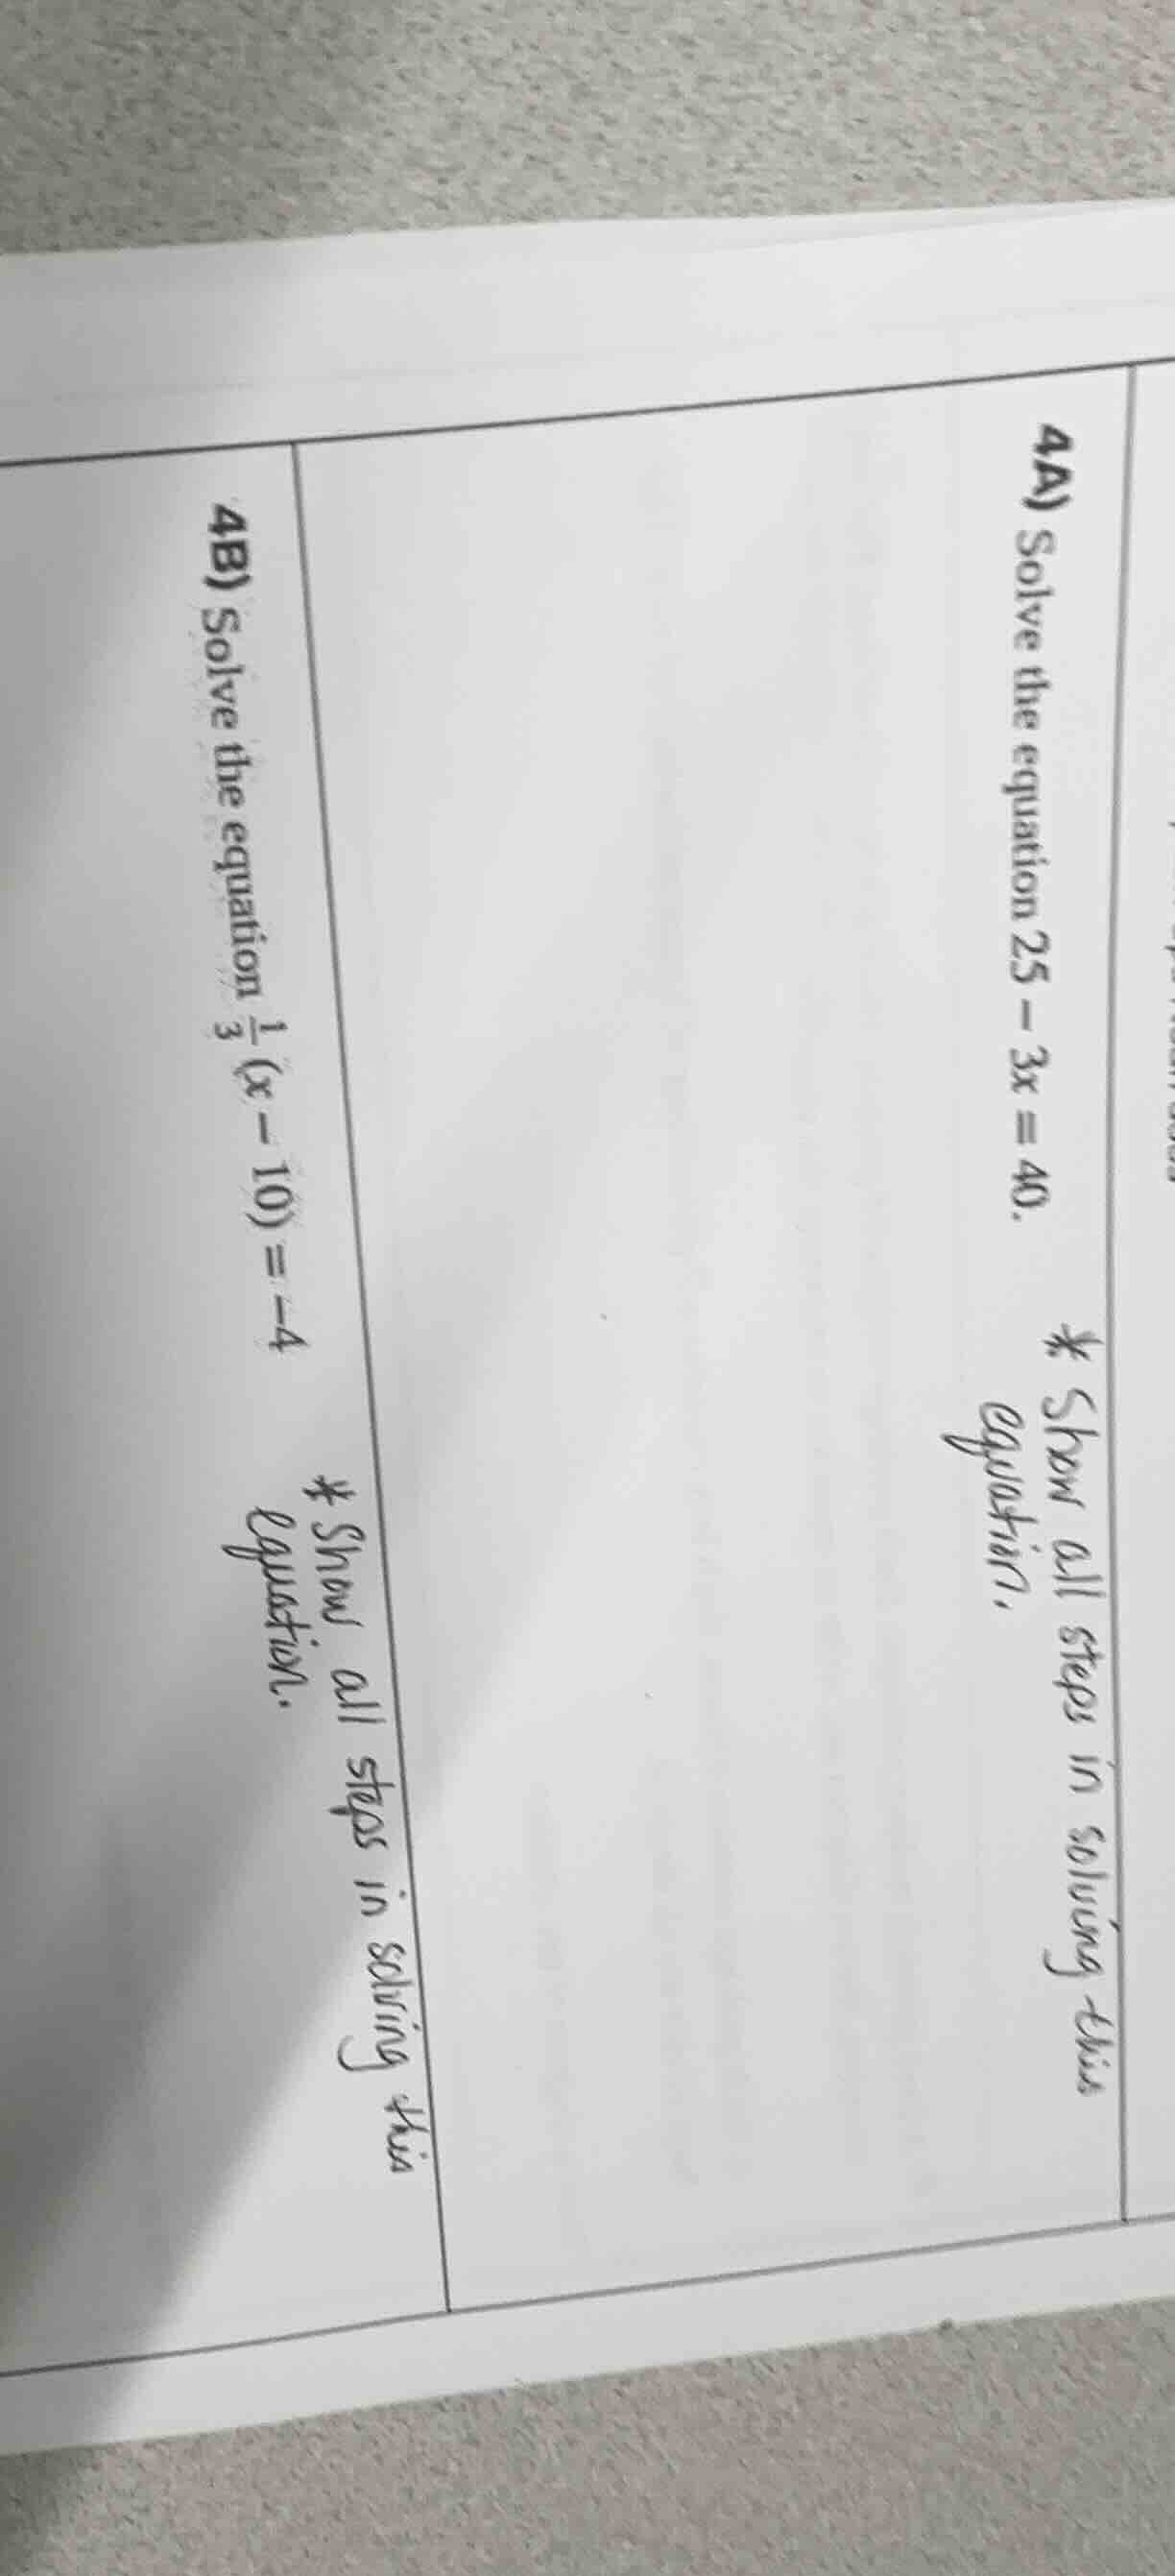 4A) Solve the equation 25 − 3x = 40.
* Show all steps in solving this
equation.
4B) Solve the equation 1/3 (x − 10) = −4
* Show all steps in solving this
equation.